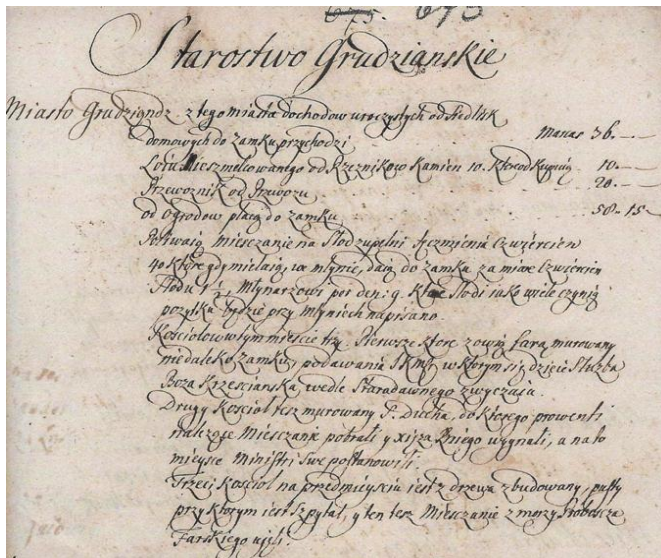 675. 673
Starostwo Grudzianskie
Miasto Grudziądz z tego miasta dochodow uroczystych od siedlisk
domowych do zamku przychodzi Marcas 36.--
Loiu nieszmelcowanego od Rzeznikow Kamien 10. 10.--
Przewoznik od Przewozu 20.--
od Ogrodow płacą do zamku 58.15--
Mieszczanie na Słod zupełni Jęczmienia Czwiercien
40 ktore gdy mielaią, we młynie, daią do zamku za miare Czwiercien
Słodu 1/2, Młynarzowi per den: 9. Słodi iako wiele czynią
pozytku będzie przy młyniech napisano.
Kosciołow w tym miescie trzy. Pierwsze ktore zowią farą murowany
niedaleko zamku, podawania J KMsci w ktorym się dzieie Służba
Boza Krzescianska wedle Staradawnego zwyczaia.
Drugy Kosciol tesz murowany S. Ducha, do ktorego prowenti
należące Mieszczanie pobrali y xiędza z niego wygnali, a na to
mieysce Ministri swe postanowili.
Trzeci Kosciol na przedmiesciu iest z drewa zbudowany, pusty
przy ktorym iest Szpytal, y ten tesz Mieszczanie z moczy Proboscza
Farskiego wzieli.